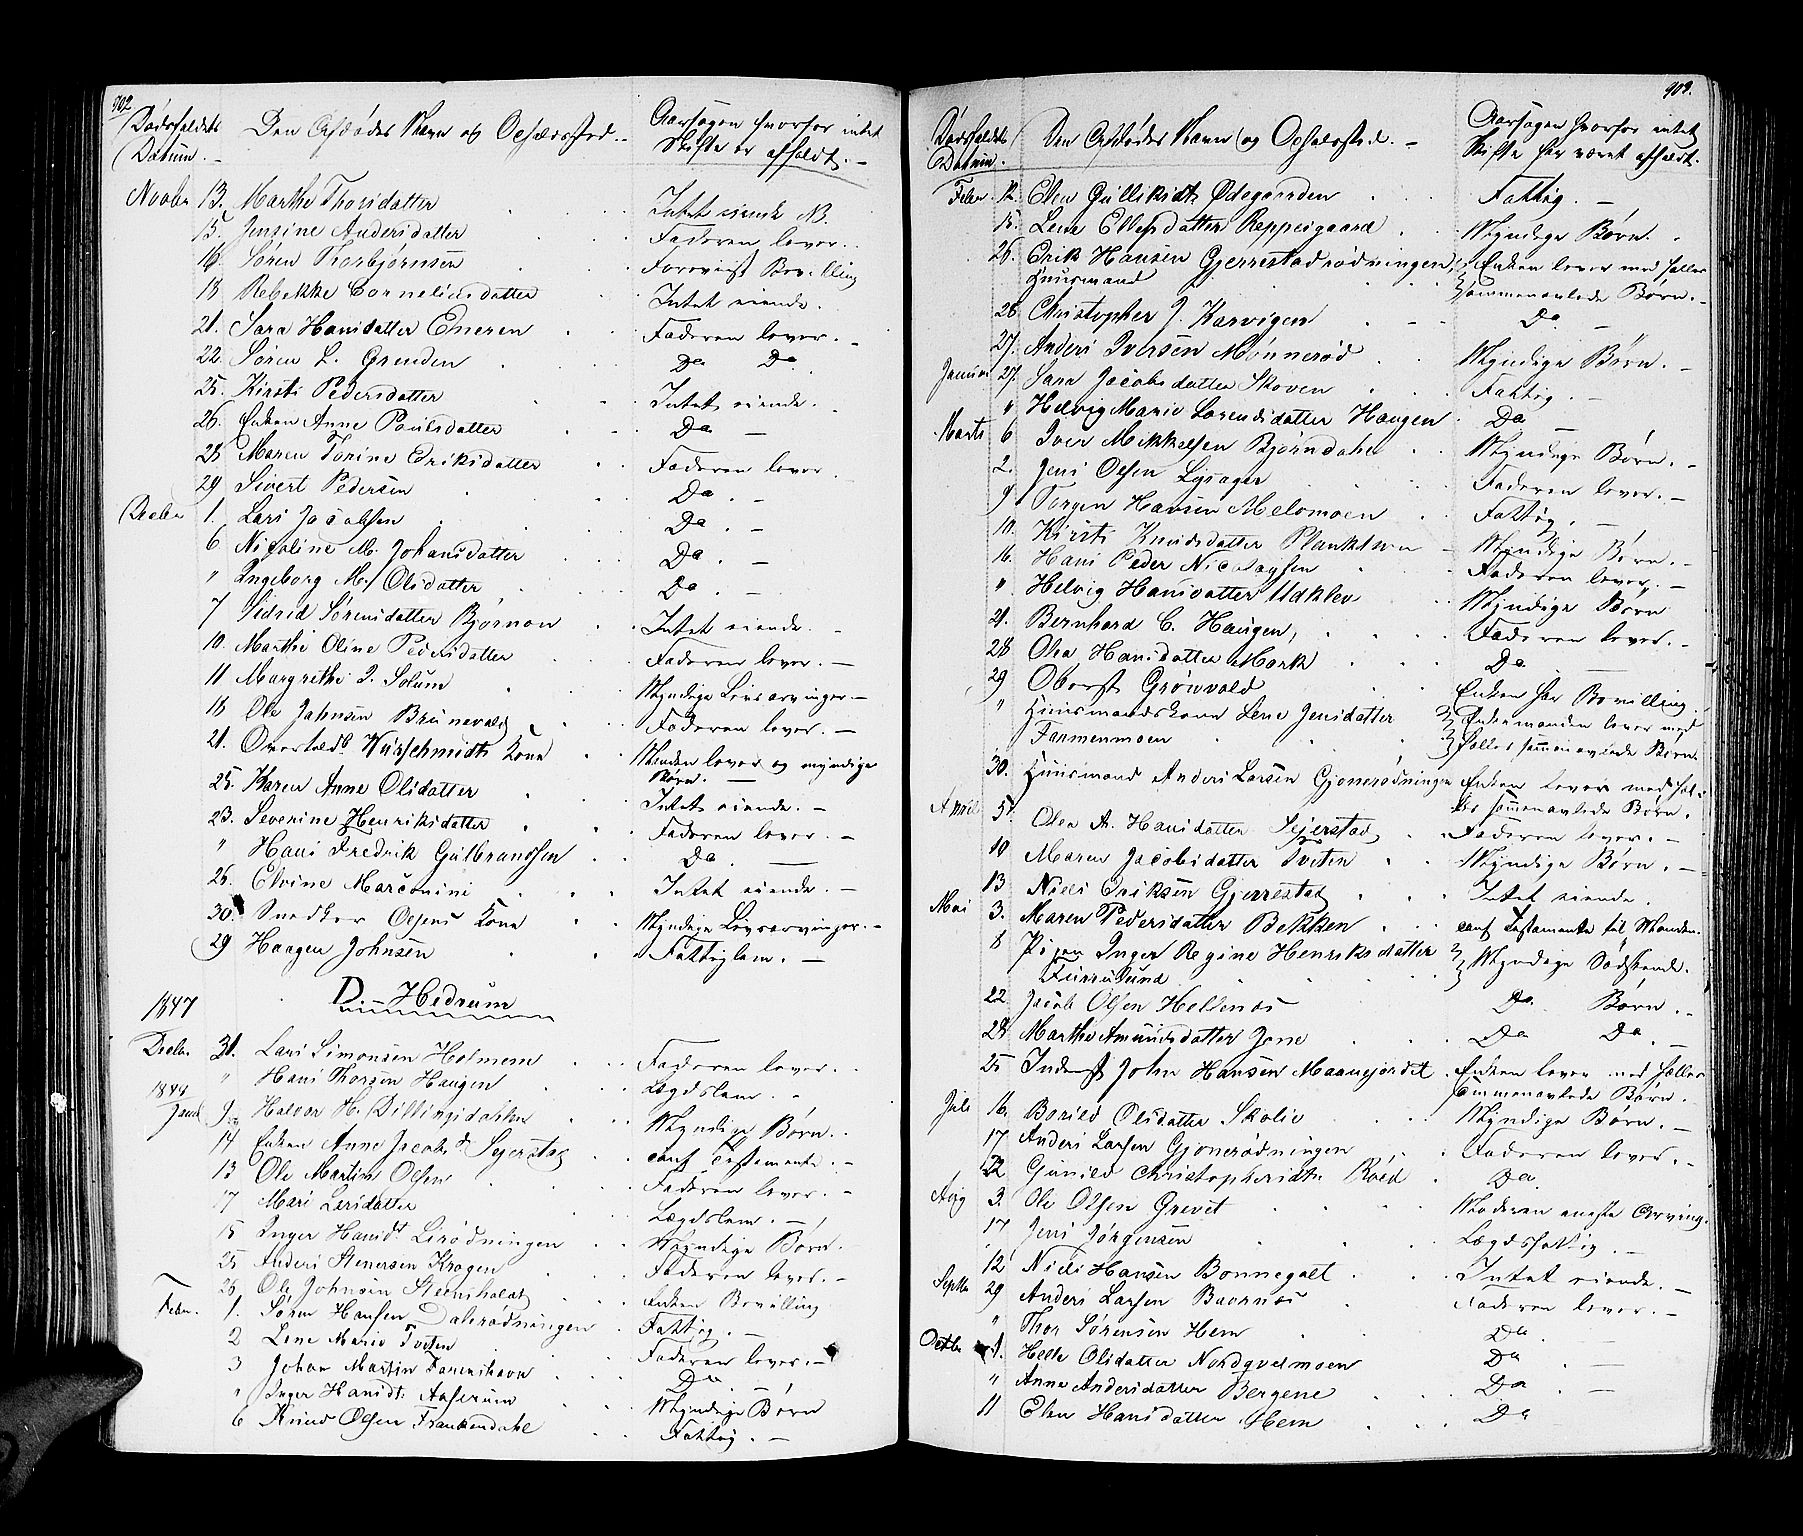 902
Dødsfaldets Datum. Den Afdødes Navn og Opholdssted. Aarsagen hvorfor intet Skifte er afholdt.
Novbr 13. Marthe Thorsdatter Intet eiende NB.
15. Jensine Andersdatter Faderen lever.
16 Søren Thorbjørnsen Foreviist Bevilling
18 Rebekke Corneliusdatter Intet eiende.
21. Sara Hansdatter Eneren Faderen lever.
22. Søren L. Grenden Do Do
25. Kirsti Pedersdatter Intet eiende.
26. Enken Anne Poulsdatter Do
28 Maren Torine Eriksdatter Faderen lever
29 Sivert Pedersen Do.
Decbr 1. Lars Jacobsen Do.
6 Nicoline M. Johansdatter Do.
" Ingeborg M. Olsdatter Do.
7 Sidrid Sørensdatter Bjørnou Intet eiende.
10. Marthe Oline Pedersdatter Faderen lever.
11 Margrethe I. Solum Myndige Livsarvinger.
18 Ole Jahnsen Brunevald Faderen lever.
21. Overtoldb Würschmidts Kone Manden lever og myndige Børn.
25. Karen Anne Olsdatter Intet eiende.
23. Severine Henriksdatter Faderen lever.
" Hans Fredrik Gulbrandsen Do.
26. Elvine Marconini Intet eiende.
30. Snedker Olsens Kone Myndige Livsarvinger.
29 Haagen Johnsen Fattiglem.
1847 D. Hedrum
Decbr. 31. Lars Simonsen Holmene Faderen lever.
" Hans Thorsen Haugen Lægdslem.
1848
Januar 9 Halvor H. Dillingsdahlen Myndige Børn.
14 Enken Anne Jacobsd Sejerstad conf Testamente.
13 Ole Martin Olsen Faderen lever.
17 Mari Larsdatter Lægdslem.
15 Inger Hansdt Lirødningen Myndige Børn.
25 Anders Stenersen Krogen Faderen lever.
26 Ole Johnsen Steensholdt Enken Bevilling
Febr. 1. Søren Hansen Dahlrødningen Fattig.
2 Lene Marie Tveten Faderen lever.
3 Johan Martin Farrishavn Do
" Inger Hansdt. Aaserum Myndige Børn
6 Knud Olsen Frankendahl Fattig.
903.
Dødsfaldets Datum. Den Afdødes Navn og Opholdssted. Aarsagen hvorfor intet Skifte har været afholdt.
Febr. 12. Elen Gulliksdtr Ødegaarden Fattig.
15. Lene Ellefsdatter Reppesgaard Myndige Børn.
26. Erik Hansen Gjerrestadrødningen, Enken lever med fælles
Huusmand sammenavlede Børn.
26 Christopher J. Karvigen Do
27. Anders Iversen Mønnerød Myndige Børn.
Januar 27. Sara Jacobsdatter Skoven Fattig.
" Helvig Marie Larendsdatter Haugen Do
Marts 6 Iver Mikkelsen Bjørndahl Myndige Børn.
2. Jens Olsen Lysager Faderen lever.
9 Torgen Hansen Melomoen Fattig.
10. Kirsti Knudsdatter Myndige Børn.
16. Hans Peder Nicolaysen Faderen lever.
" Helvig Hansdatter Udklev Myndige Børn
21. Bernhard C. Haugen, Faderen lever.
28 Olea Hansdatter Mork Do
29 Oberst Grønvold Enken har Bevilling.
" Huusmandskone Lene Jensdatter Enkemanden lever med
Farmenmoen fælles sammenavlede Børn.
30. Huusmand Anders Larsen Gjonerødningen Enken lever med fæl-
les sammenavlede Børn.
April 5. Olea A. Hansdatter Sejerstad Faderen lever.
10 Maren Jacobsdatter Tveten Myndige Børn.
13 Niels Eriksen Gjerrestad Intet eiende.
Mai 3. Maren Pedersdatter Bekken conf Testamente til Manden.
8 Pigen Inger Regine Henriksdatter Myndige Sødskende.
Furrulund
22 Jacob Olsen Hellenæs Do Børn.
28 Marthe Amundsdatter Jone Do Do.
25 Inderst John Hansen Maanejordet Enken lever med fælles
sammenavlede Børn.
Juli 16. Borild Olsdatter Skolie Myndige Børn.
17 Anders Larsen Gjonerødningen Faderen lever.
22 Gunild Christophersdtr. Røed Do
Aug 3. Ole Olsen Grevet Moderen eneste Arving.
17 Jens Jørgensen Lægdsfattig.
12 Niels Hansen Bonnegolt Intet eiende.
Septbr 29 Anders Larsen Baernæs Faderen lever.
" Thor Sørensen Hem Do
Octbr 1. Helle Olsdatter Nordqvelmoen Do
" Anne Andersdatter Bergene Do
11 Elen Hansdatter Hem Do